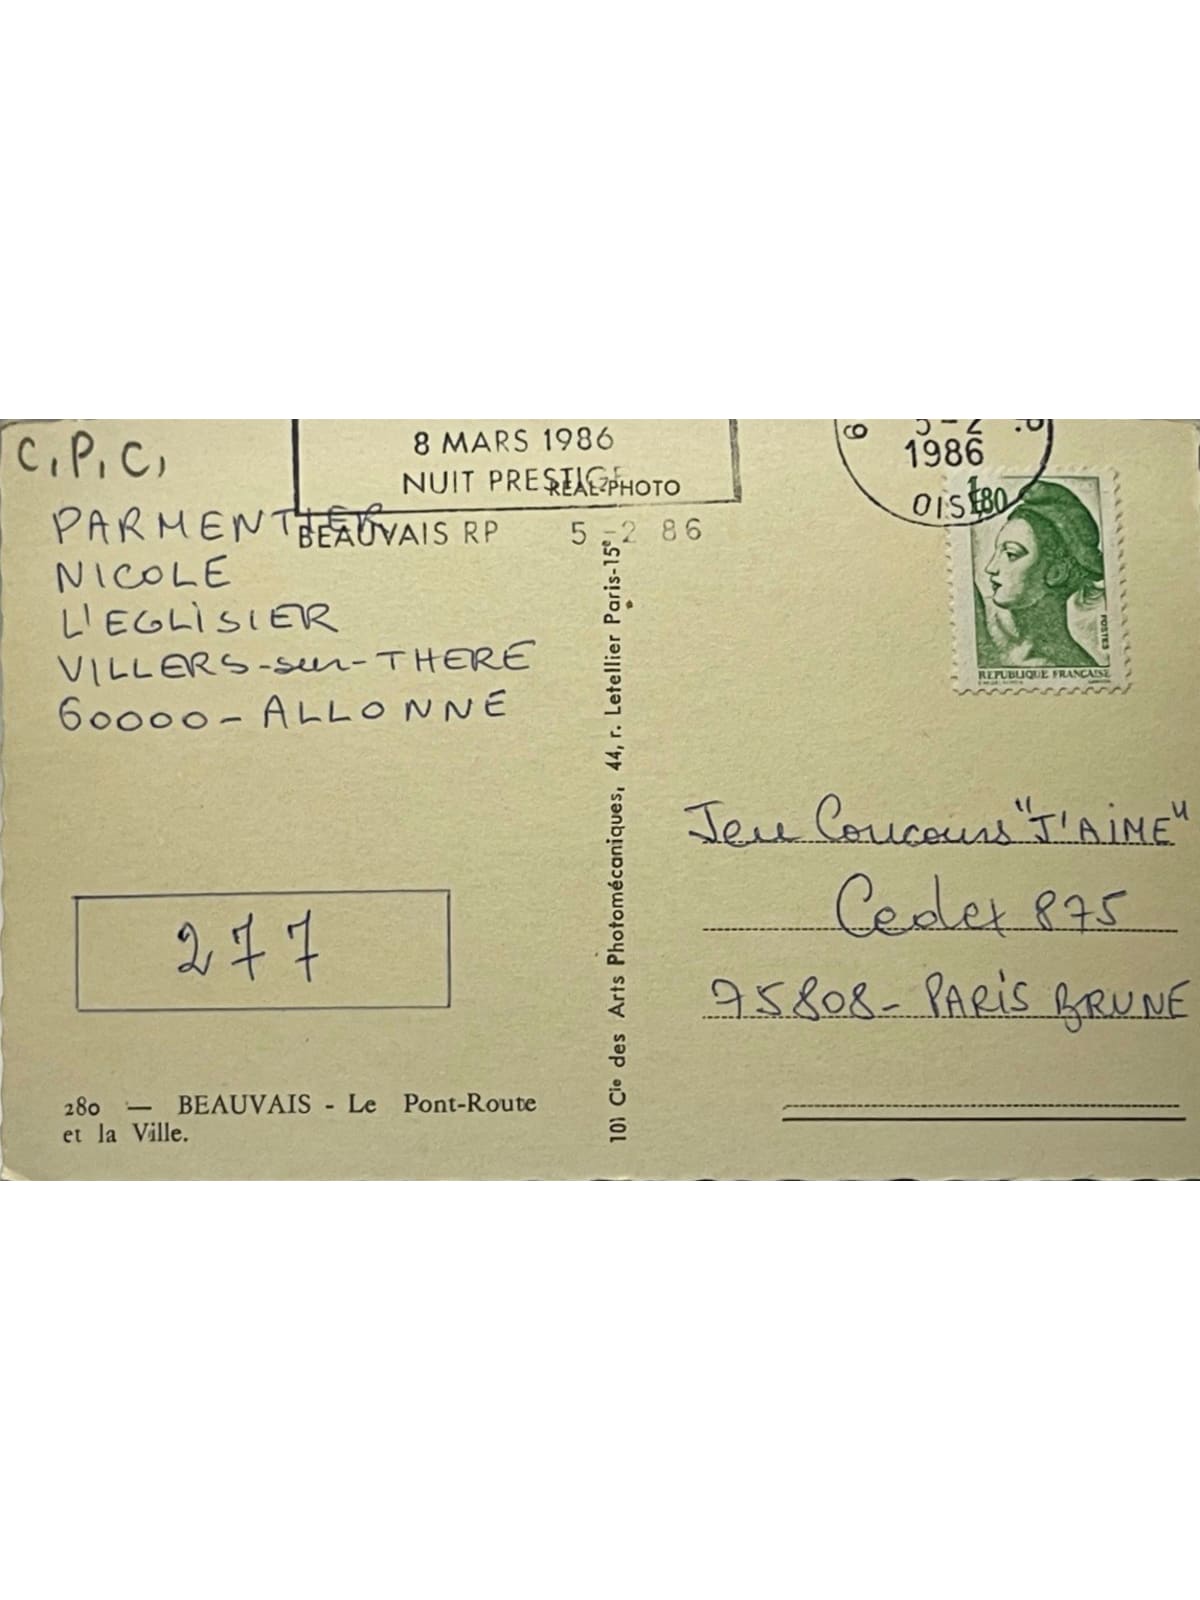 C.P.C.
8 MARS 1986
NUIT PRESTIGE
REAL-PHOTO
BEAUVAIS RP 5-2 86
5-2
1986
OISE
1,80
POSTES
REPUBLIQUE FRANÇAISE
PARMENTIER
NICOLE
L'EGLISIER
VILLERS-sur-THERE
60000-ALLONNE
277
280 — BEAUVAIS - Le Pont-Route
et la Ville.
101 Cie des Arts Photomécaniques, 44, r. Letellier Paris-15e
Jeu Concours "J'AIME"
Cedex 875
75808-PARIS BRUNE